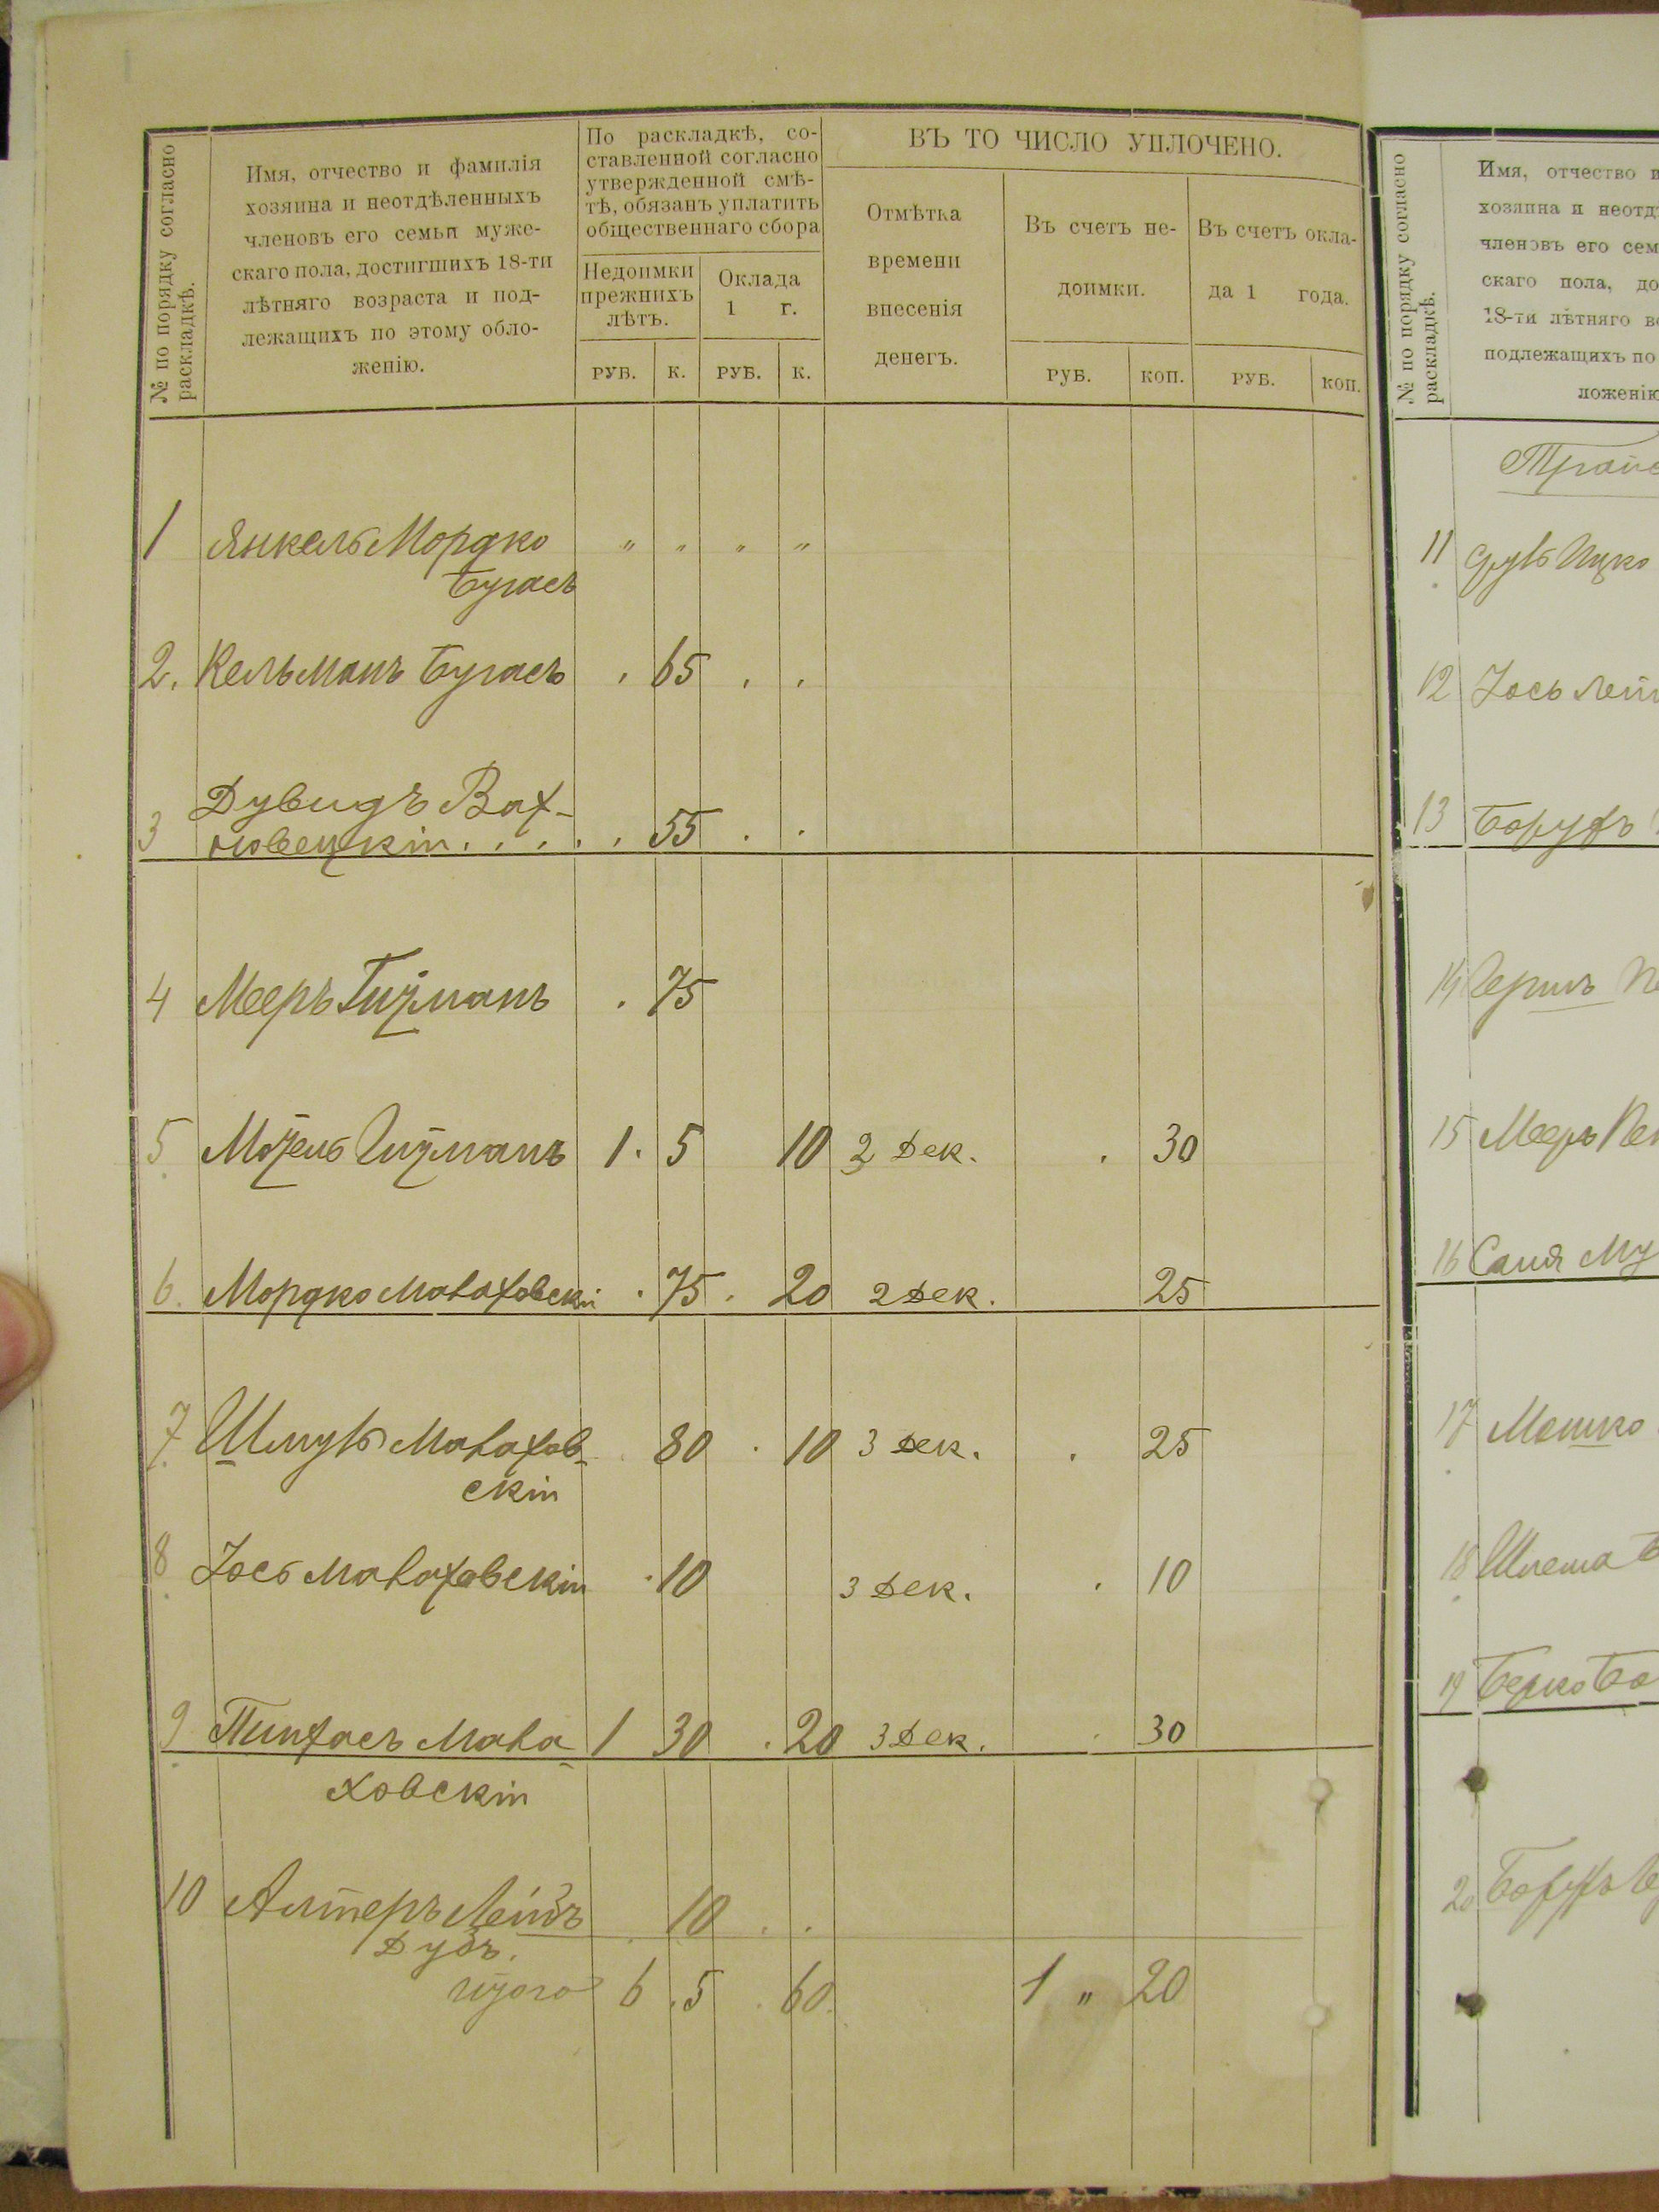 № по порядку согласно
раскладкѣ.
Имя, отчество и фамилія
хозяина и неотдѣленныхъ
членовъ его семьи муже-
скаго пола, достигшихъ 18-ти
лѣтняго возраста и под-
лежащихъ по этому обло-
женію.
По раскладкѣ, со-
ставленной согласно
утвержденной смѣ-
тѣ, обязанъ уплатить
общественнаго сбора
Недоимки
прежнихъ
лѣтъ.
Оклада
1 г.
РУБ. К. РУБ. К.
ВЪ ТО ЧИСЛО УПЛОЧЕНО.
Отмѣтка
времени
внесенія
денегъ.
Въ счетъ не-
доимки.
РУБ. КОП.
Въ счетъ окла-
да 1 года.
РУБ. КОП.
1 Янкель Мордко " " " "
Бугаевъ
2. Кельманъ Бугаевъ . 65 . .
Дувидъ Вах-
3 новецкій . . . . . . 55 . .
4 Мееръ Гитманъ . 75
5 Мотель Гитманъ 1. 5 10 2 Дек. . 30
6. Мордко Малаховскі . 75 . 20 2 Дек. 25
7 Шмуль Малахов- . 80 . 10 3 Дек. . 25
скій
8 Іось Малаховскій . 10 3 Дек. . 10
9 Пинхасъ Мала- 1 30 . 20 3 Дек. . 30
ховскій
10 Алтеръ Лейбъ . 10 . .
Дубъ.
Итого 6 . 5 . 60. 1 " 20
№ по порядку согласно
раскладкѣ.
Имя, отчество и
хозяина и неотд
членовъ его сем
скаго пола, до
18-ти лѣтняго в
подлежащихъ по
ложенію
11 Сруль Ицко
12 Іось Лей
13 Борухъ
14
15 Мееръ
16 Саня Му
17 Мошко
18 Шлема
19 Берко Бо
20 Борухъ